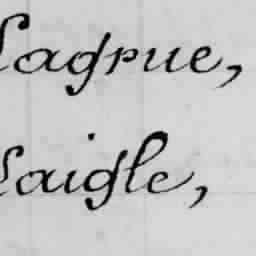 Lagrue,
Laigle,